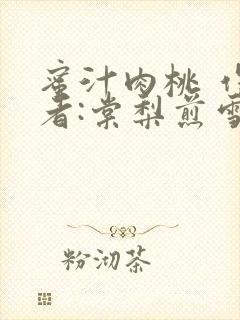 蜜汁肉桃
者:棠梨煎雪
粉沏茶